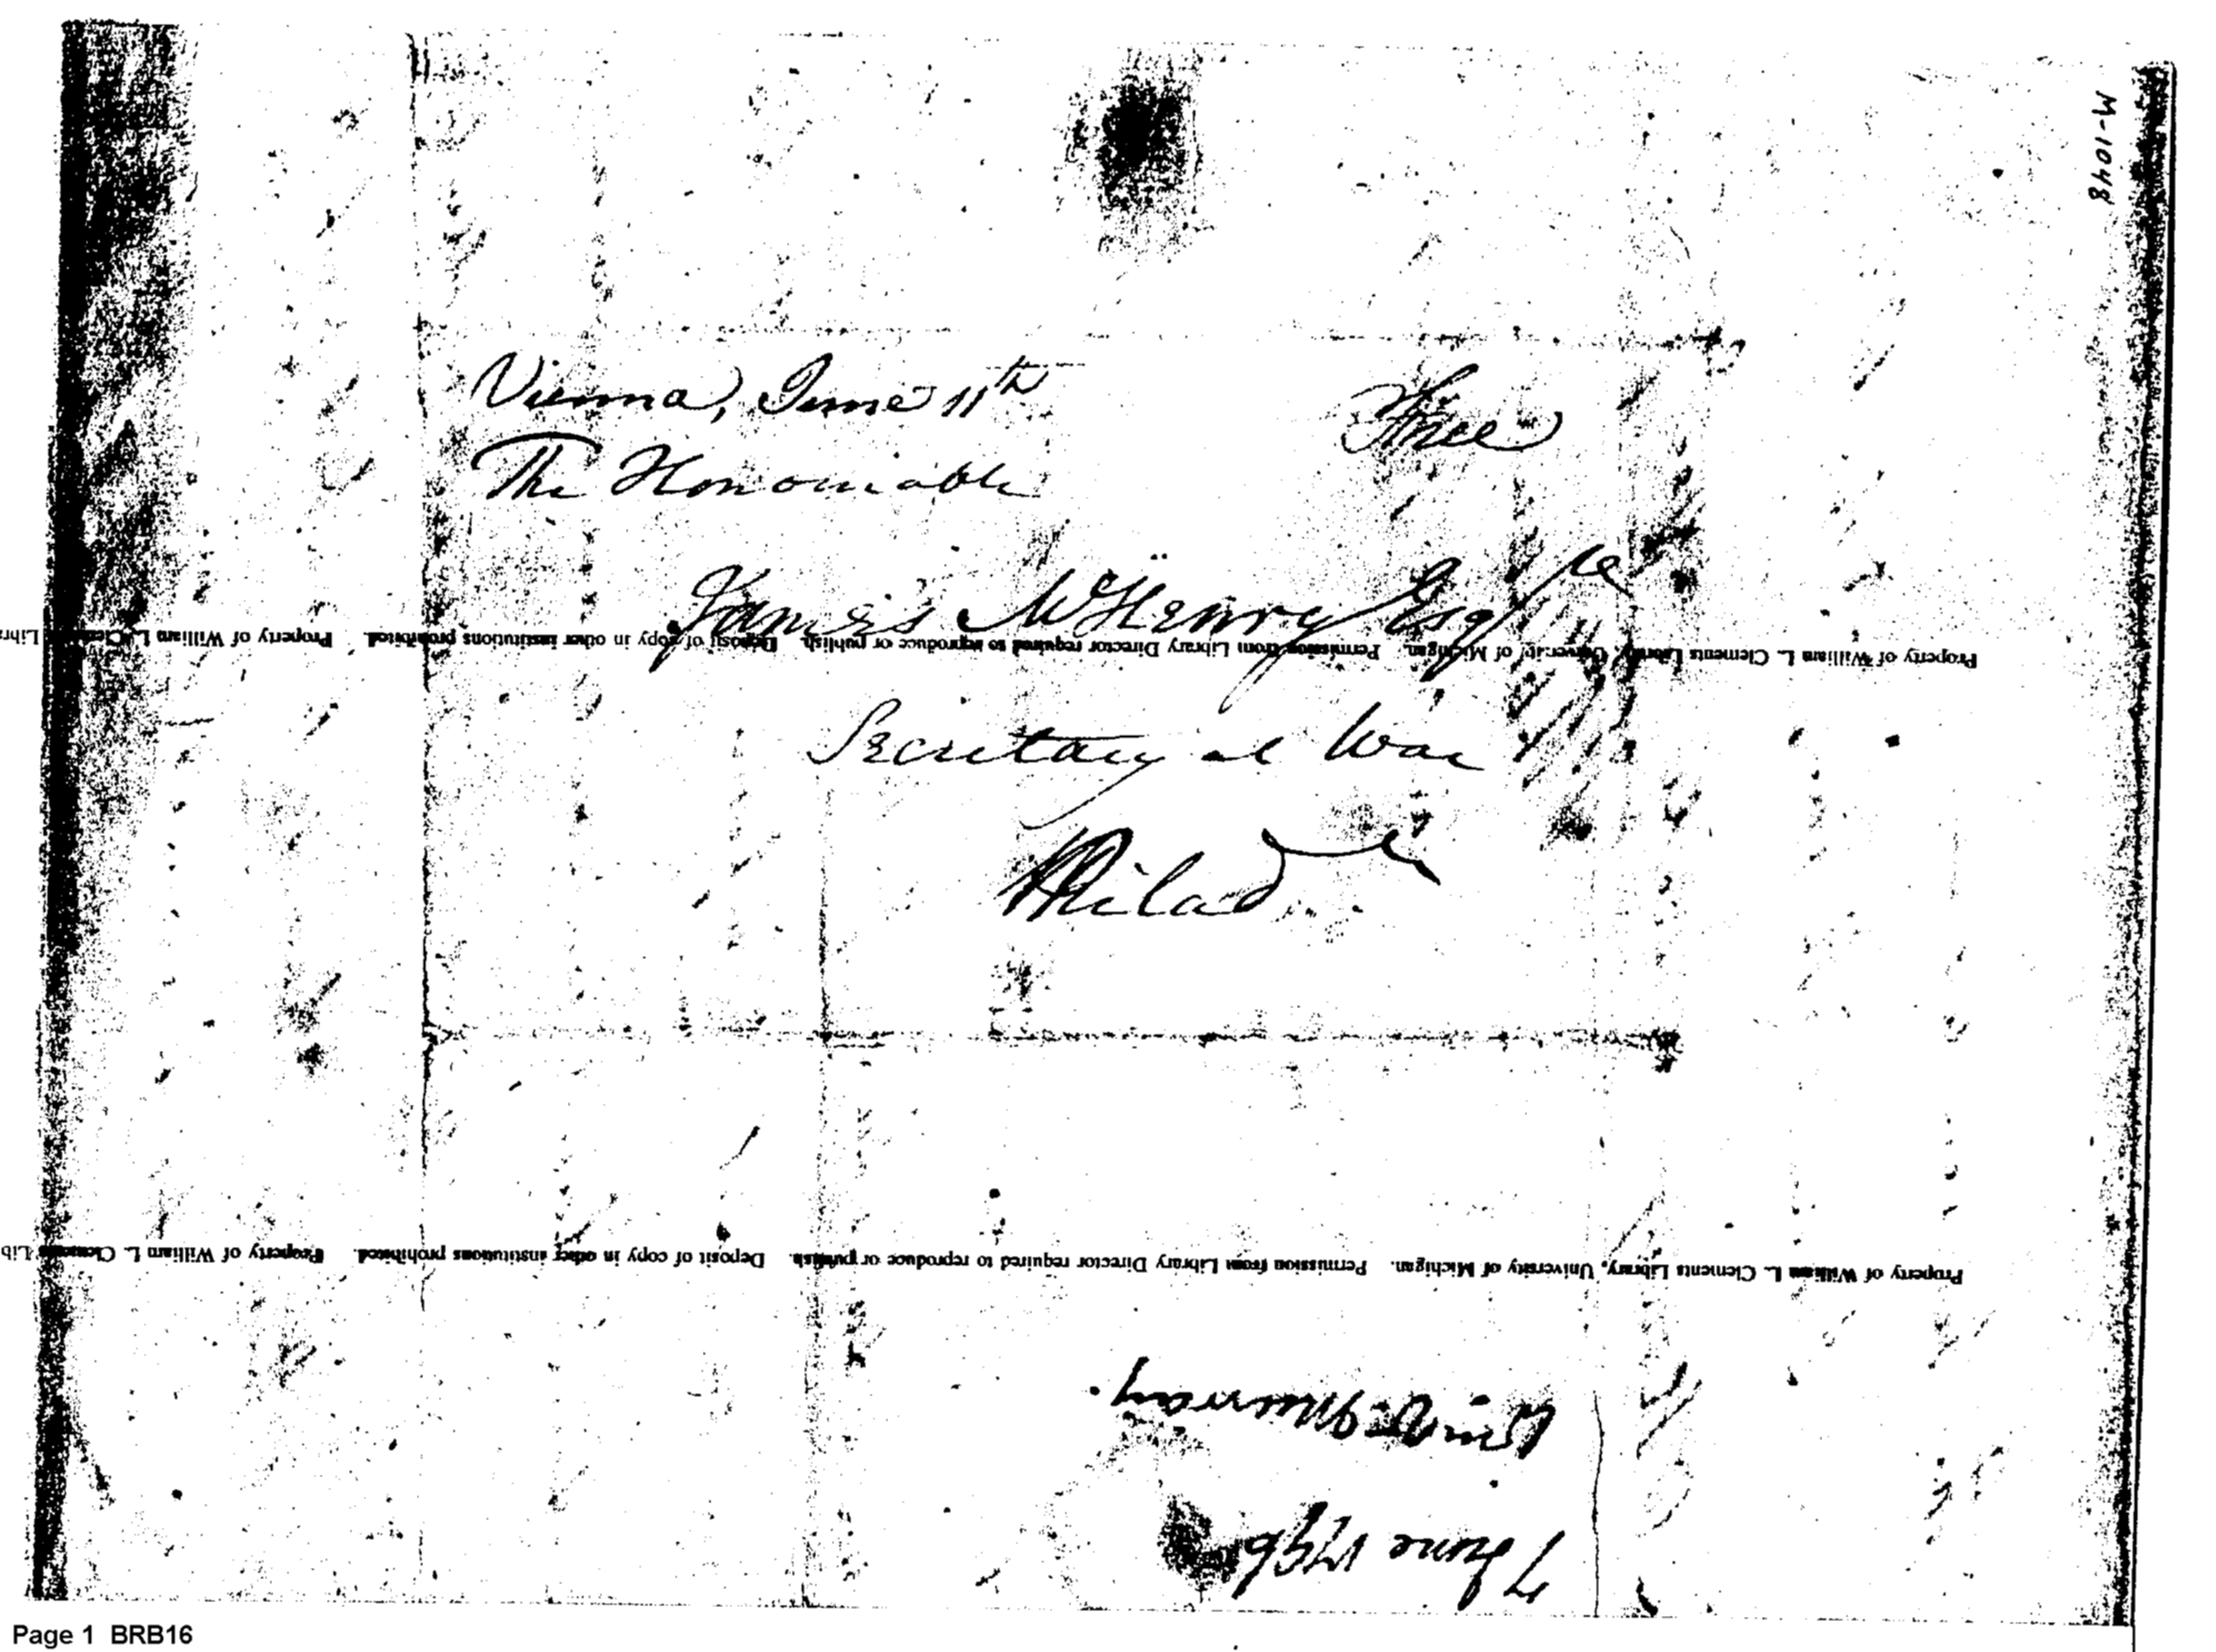 M-1048
Vienna, June 11th
Free
The Honourable
James McHenry Esqre
Property of William L. Clements Library, University of Michigan. Permission from Library Director required to reproduce or publish. Deposit of copy in other institutions prohibited. Property of William L. Clements Libr
Secretary at War
Philad
Property of William L. Clements Library, University of Michigan. Permission from Library Director required to reproduce or publish. Deposit of copy in other institutions prohibited. Property of William L. Clements Lib
7 June 1796
Wm. V. Murray.
Page 1 BRB16